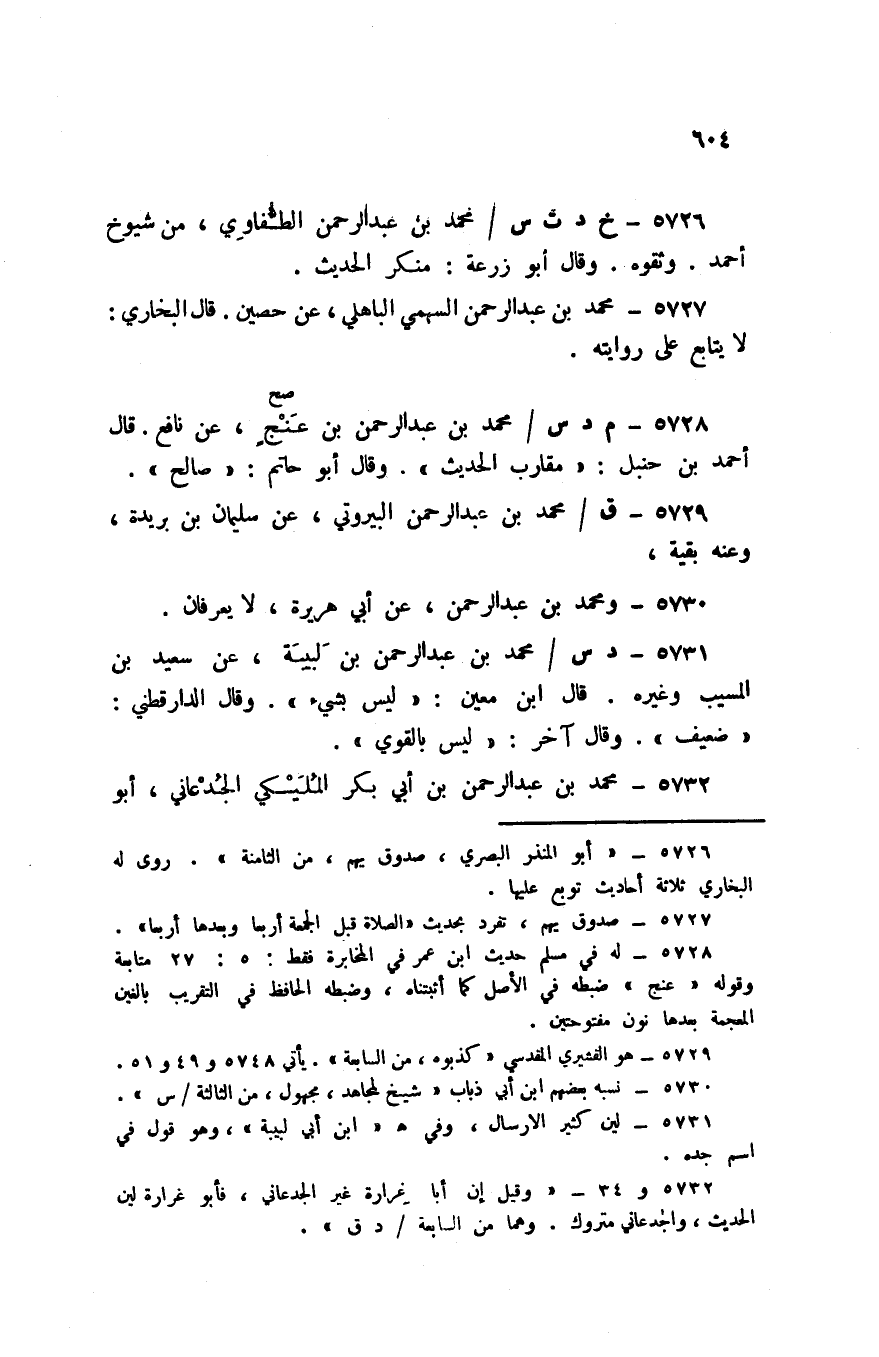 ٦٠٤
٥٧٢٦ – خ د ت س / محمد بن عبدالرحمن الطُّفاوِي ، من شيوخ
أحمد . وثقوه . وقال أبو زرعة : منكر الحديث .
٥٧٢٧ – محمد بن عبدالرحمن السهمي الباهلي ، عن حصين . قال البخاري :
لا يتابع على روايته .
صح
٥٧٢٨ – م د س / محمد بن عبدالرحمن بن عَنْجٍ ، عن نافع . قال
أحمد بن حنبل : « مقارب الحديث » . وقال أبو حاتم : « صالح » .
٥٧٢٩ – ق / محمد بن عبدالرحمن البيروتي ، عن سليمان بن بريدة ،
وعنه بقية ،
٥٧٣٠ – ومحمد بن عبدالرحمن ، عن أبي هريرة ، لا يعرفان .
٥٧٣١ – د س / محمد بن عبدالرحمن بن لَبيبَة ، عن سعيد بن
المسيب وغيره . قال ابن معين : « ليس بشيء » . وقال الدارقطني :
« ضعيف » . وقال آخر : « ليس بالقوي » .
٥٧٣٢ – محمد بن عبدالرحمن بن أبي بكر المُلَيْكي الجُدْعاني ، أبو
٥٧٢٦ – « أبو المنذر البصري ، صدوق يهم ، من الثامنة » . روى له
البخاري ثلاثة أحاديث توبع عليها .
٥٧٢٧ – صدوق يهم ، تفرد بحديث «الصلاة قبل الجمعة أربعا وبعدها أربعا» .
٥٧٢٨ – له في مسلم حديث ابن عمر في المخابرة فقط : ٥ : ٢٧ متابعة
وقوله « عنج » ضبطه في الأصل كما أثبتناه ، وضبطه الحافظ في التقريب بالغين
المعجمة بعدها نون مفتوحتين .
٥٧٢٩ – هو القشيري المقدسي « كذبوه ، من السابعة » . يأتي ٥٧٤٨ و ٤٩ و ٥١ .
٥٧٣٠ – نسبه بعضهم ابن أبي ذباب « شيخ لمجاهد ، مجهول ، من الثالثة / س » .
٥٧٣١ – لين كثير الارسال ، وفي ه « ابن أبي لبيبة » ، وهو قول في
اسم جده .
٥٧٣٢ و ٣٤ – « وقيل إن أبا غِرارة غير الجدعاني ، فأبو غرارة لين
الحديث ، والجدعاني متروك . وهما من السابعة / د ق » .